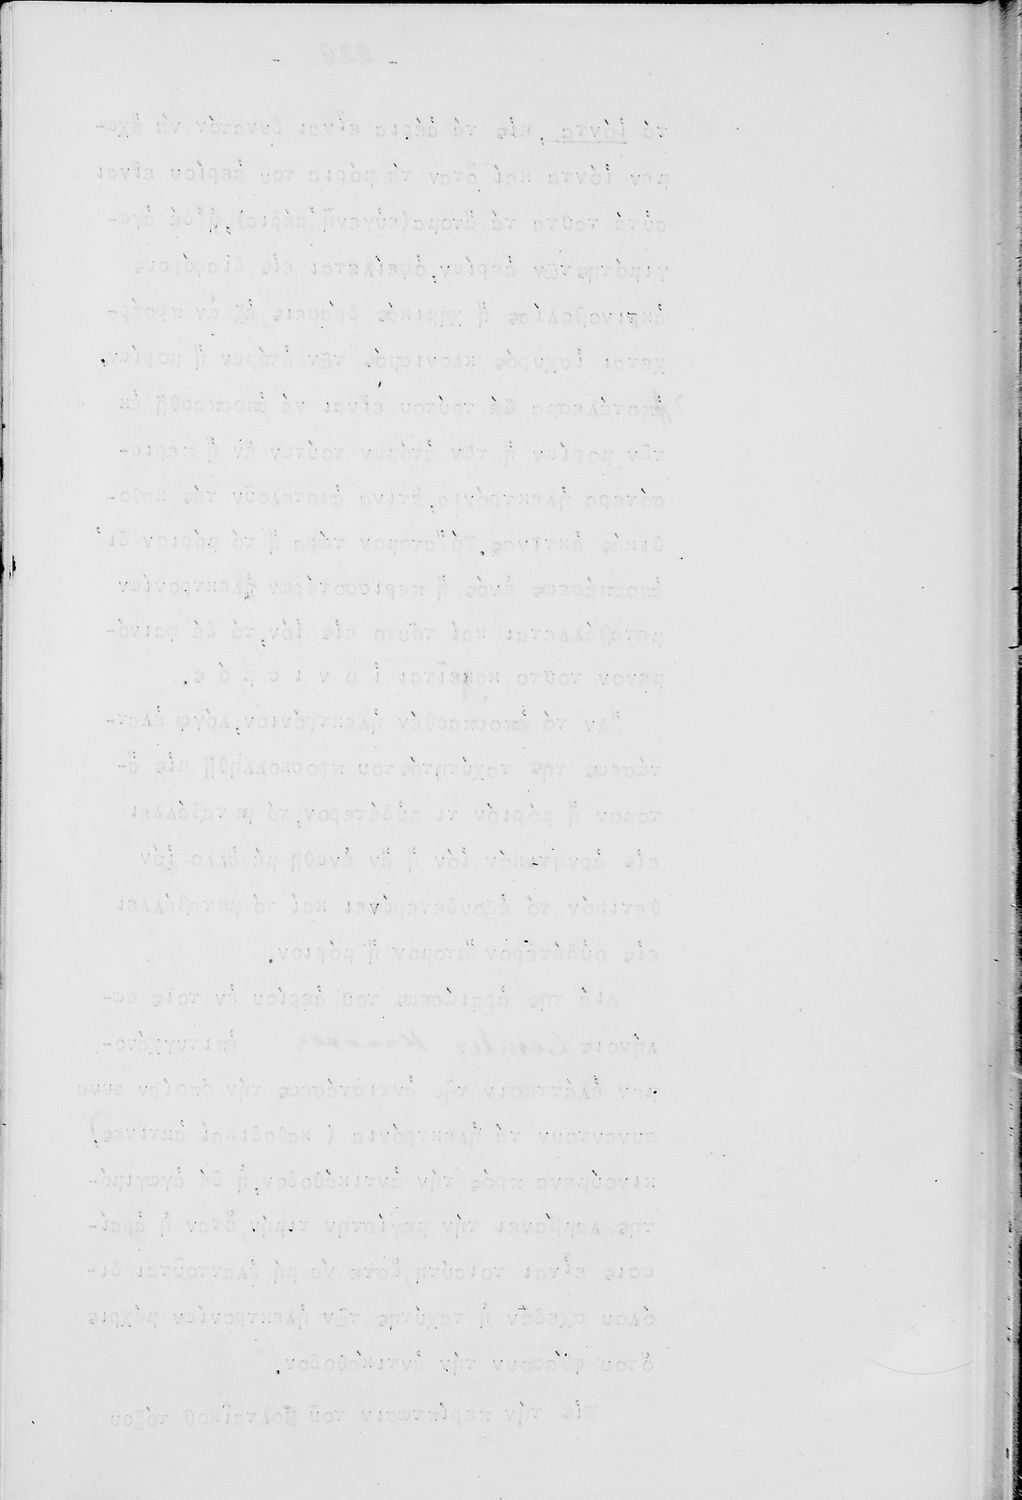 - 226 -
τά ἰόντα, εἰς τά ἀέρια εἶναι δυνατόν νά ἔχω-
μεν ἰόντα καί ὅταν τά μόρια τοῦ ἀερίου εἶναι
αὐτά ταῦτα τά ἄτομα(εὐγενῆ ἀέρια), ἡ δέ ἀγω-
γιμότης τῶν ἀερίων, ὀφείλεται εἰς διαφόρους
ἀκτινοβολίας ἤ χημικάς δράσεις, ἐξ ὧν προέρ-
χεται ἰσχυρός κλονισμός τῶν ἀτόμων ἤ μορίων.
Ἀποτέλεσμα δέ τούτου εἶναι νά ἀποσπασθῇ ἐκ
τῶν μορίων ἤ τῶν ἀτόμων τούτων ἕν ἤ περισ-
σότερα ἠλεκτρόνια, ἅτινα ἀποτελοῦν τάς καθο-
δικάς ἀκτῖνας. Τό ἄτομον τώρα ἤ τό μόριον δι'
ἀποσπάσεως ἑνός ἤ περισσοτέρων ἠλεκτρονίων
μεταβάλλεται καί τοῦτο εἰς ἰόν, τό δέ φαινό-
μενον τοῦτο καλεῖται ἰ ο ν ι σ μ ό ς.
Ἄν τό ἀποσπασθέν ἠλεκτρόνιον, λόγῳ ἐλατ-
τώσεως τῆς ταχύτητός του προσκολληθῇ εἰς ἄ-
τομον ἤ μόριόν τι οὐδέτερον, τό μεταβάλλει
εἰς ἀρνητικόν ἰόν ἤ ἄν ἑνωθῇ μέ ἄλλο ἰόν
θετικόν τό ἐξουδετερώνει καί τό μεταβάλλει
εἰς οὐδέτερον ἄτομον ἤ μόριον.
Διά τῆς ἀραιώσεως τοῦ ἀερίου ἐν τοῖς σω-
λήνοις ἐπιτυγχάνο-
μεν ἐλάττωσιν τῆς ἀντιστάσεως τήν ὁποίαν
συναντοῦν τά ἠλεκτρόνια ( καθοδικαί ἀκτῖνες)
κινούμενα πρός τήν ἀντικάθοδον, ἡ δέ ἀγωγιμό-
της λαμβάνει τήν μεγίστην τιμήν, ὅταν ἡ ἀραί-
ωσις εἶναι τοιαύτη, ὥστε νά μή ἐλαττοῦται δι-
όλου σχεδόν ἡ ταχύτης τῶν ἠλεκτρονίων μέχρις
ὅτου φθάσουν τήν ἀντικάθοδον.
Εἰς τήν περίπτωσιν τοῦ βολταϊκοῦ τόξου